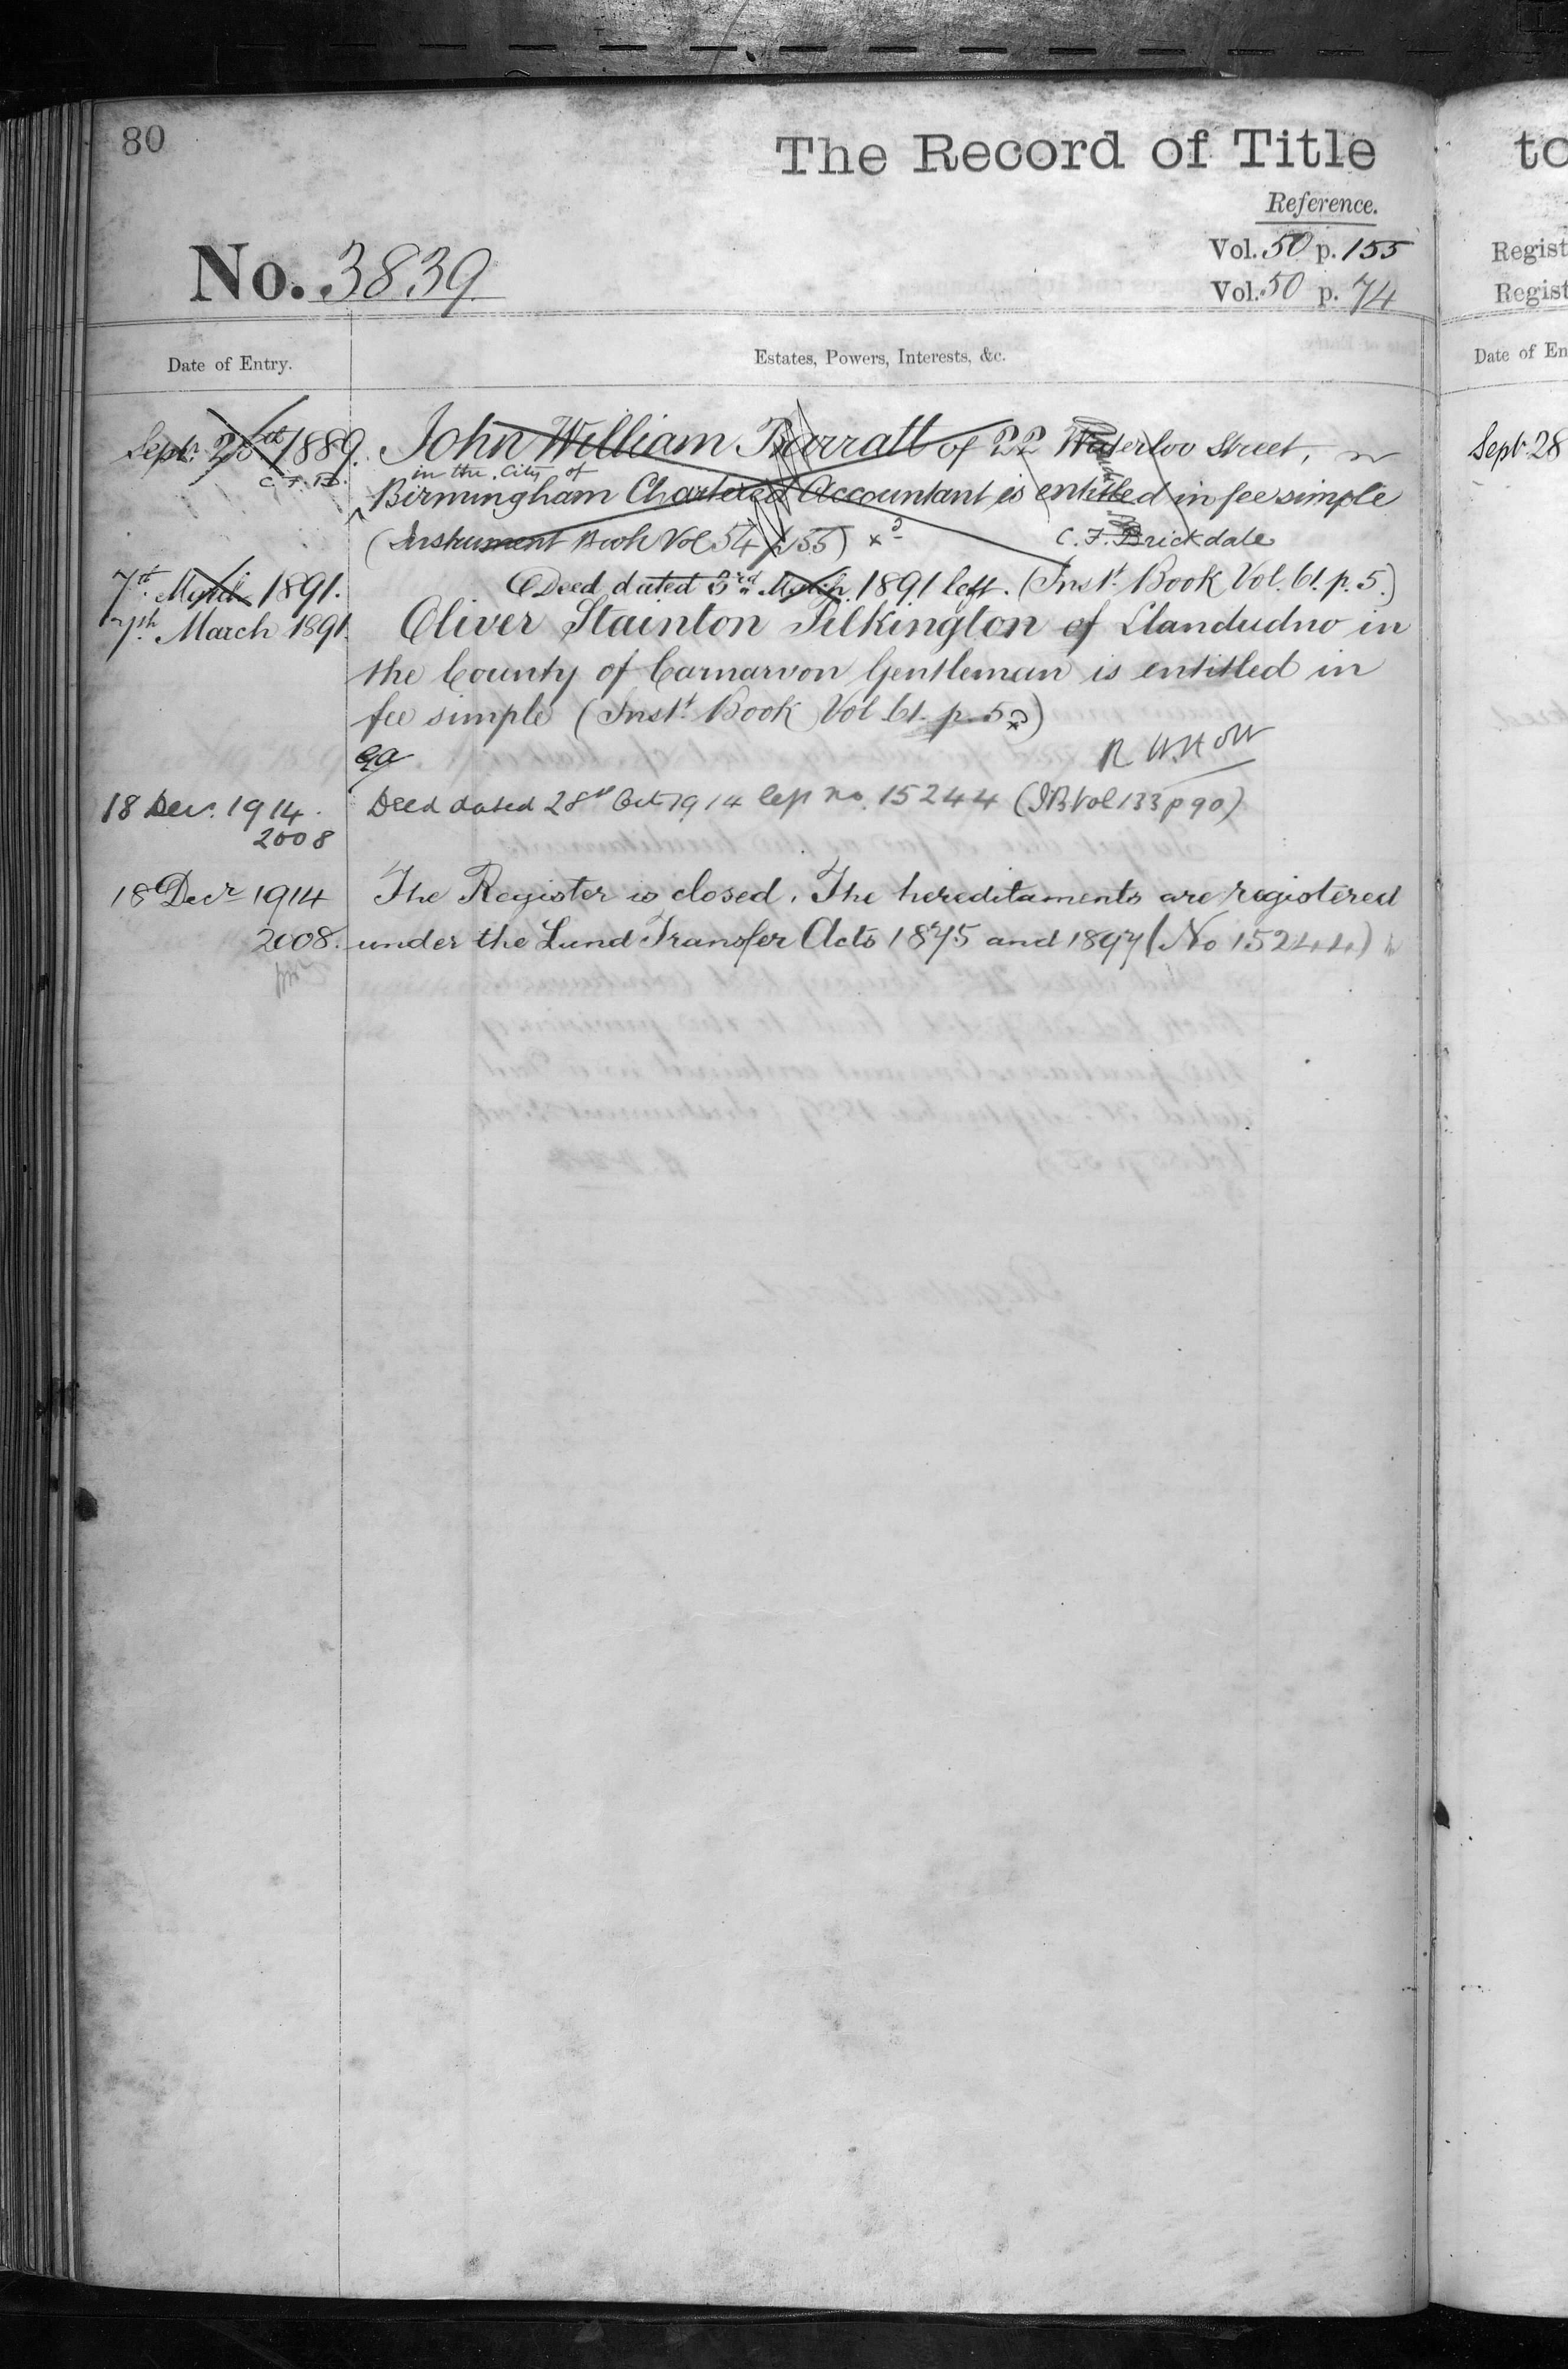 80
The Record of Title
Reference.
No. 3839
Vol. 50 p. 155
Vol. 50 p. 74
Date of Entry.
Estates, Powers, Interests, &c.
Septr. 28th 1889.
C. F. B.
John William Barratt of 22 Waterloo Street,
in the City of
Birmingham Chartered Accountant is entitled in fee simple
(Instrument Book Vol 54 p 155) C. F. Brickdale
7th March 1891. Deed dated 3rd March 1891 left. (Inst. Book Vol. 61. p. 5.)
7th March 1891. Oliver Stainton Pilkington of Llandudno in
the County of Carnarvon Gentleman is entitled in
fee simple (Inst. Book Vol 61. p. 5.)
18 Decr. 1914. Deed dated 28th Oct 1914 left no. 15244 (IB Vol 133 p 90)
2008
18 Decr 1914 The Register is closed. The hereditaments are registered
2008. under the Land Transfer Acts 1875 and 1897 (No 15244)
to
Regist
Regist
Date of En
Sept 28